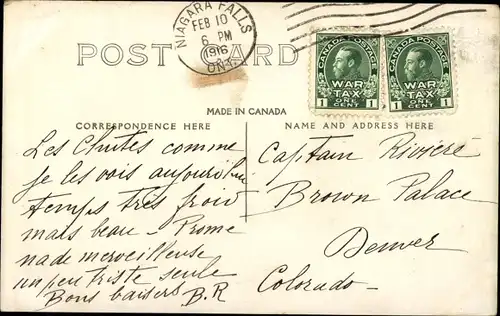 NIAGARA FALLS
FEB 10
6 PM
1916
ONT.
POST CARD
CANADA POSTAGE
WAR
TAX
1 ONE CENT 1
CANADA POSTAGE
WAR
TAX
1 ONE CENT 1
MADE IN CANADA
CORRESPONDENCE HERE
NAME AND ADDRESS HERE
Les Chutes comme
je les vois aujourd'hui
temps très froid
mais beau - Prome
nade merveilleuse
un peu triste seule
Bons baisers B.R
Captain Rivière
Brown Palace
Denver
Colorado -